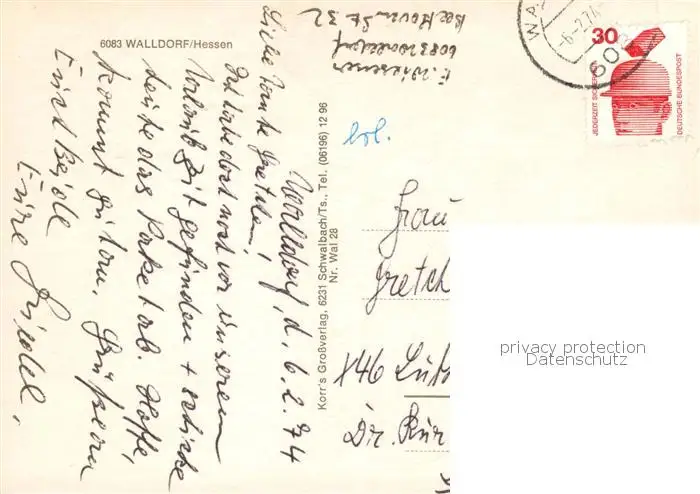 6083 WALLDORF/Hessen
E. Wiesener
6083 Walldorf
Beethoven St. 32
Walldorf, d. 6.2.74
Liebe Tante Gretchen!
Ich habe doch noch vor unserem
Urlaub Zeit gefunden + schicke
heute das Paket ab. Hoffe,
kommt gut an. Grüße an
Euch beide
Eure Friedel.
Korr's Großverlag, 6231 Schwalbach/Ts., Tel. (06196) 12 96
Nr. Wal 28
WA
-6.-2.74
608
30
JEDERZEIT SICHERHEIT
DEUTSCHE BUNDESPOST
Frau
Gretch
Dr. Kur
privacy protection
Datenschutz